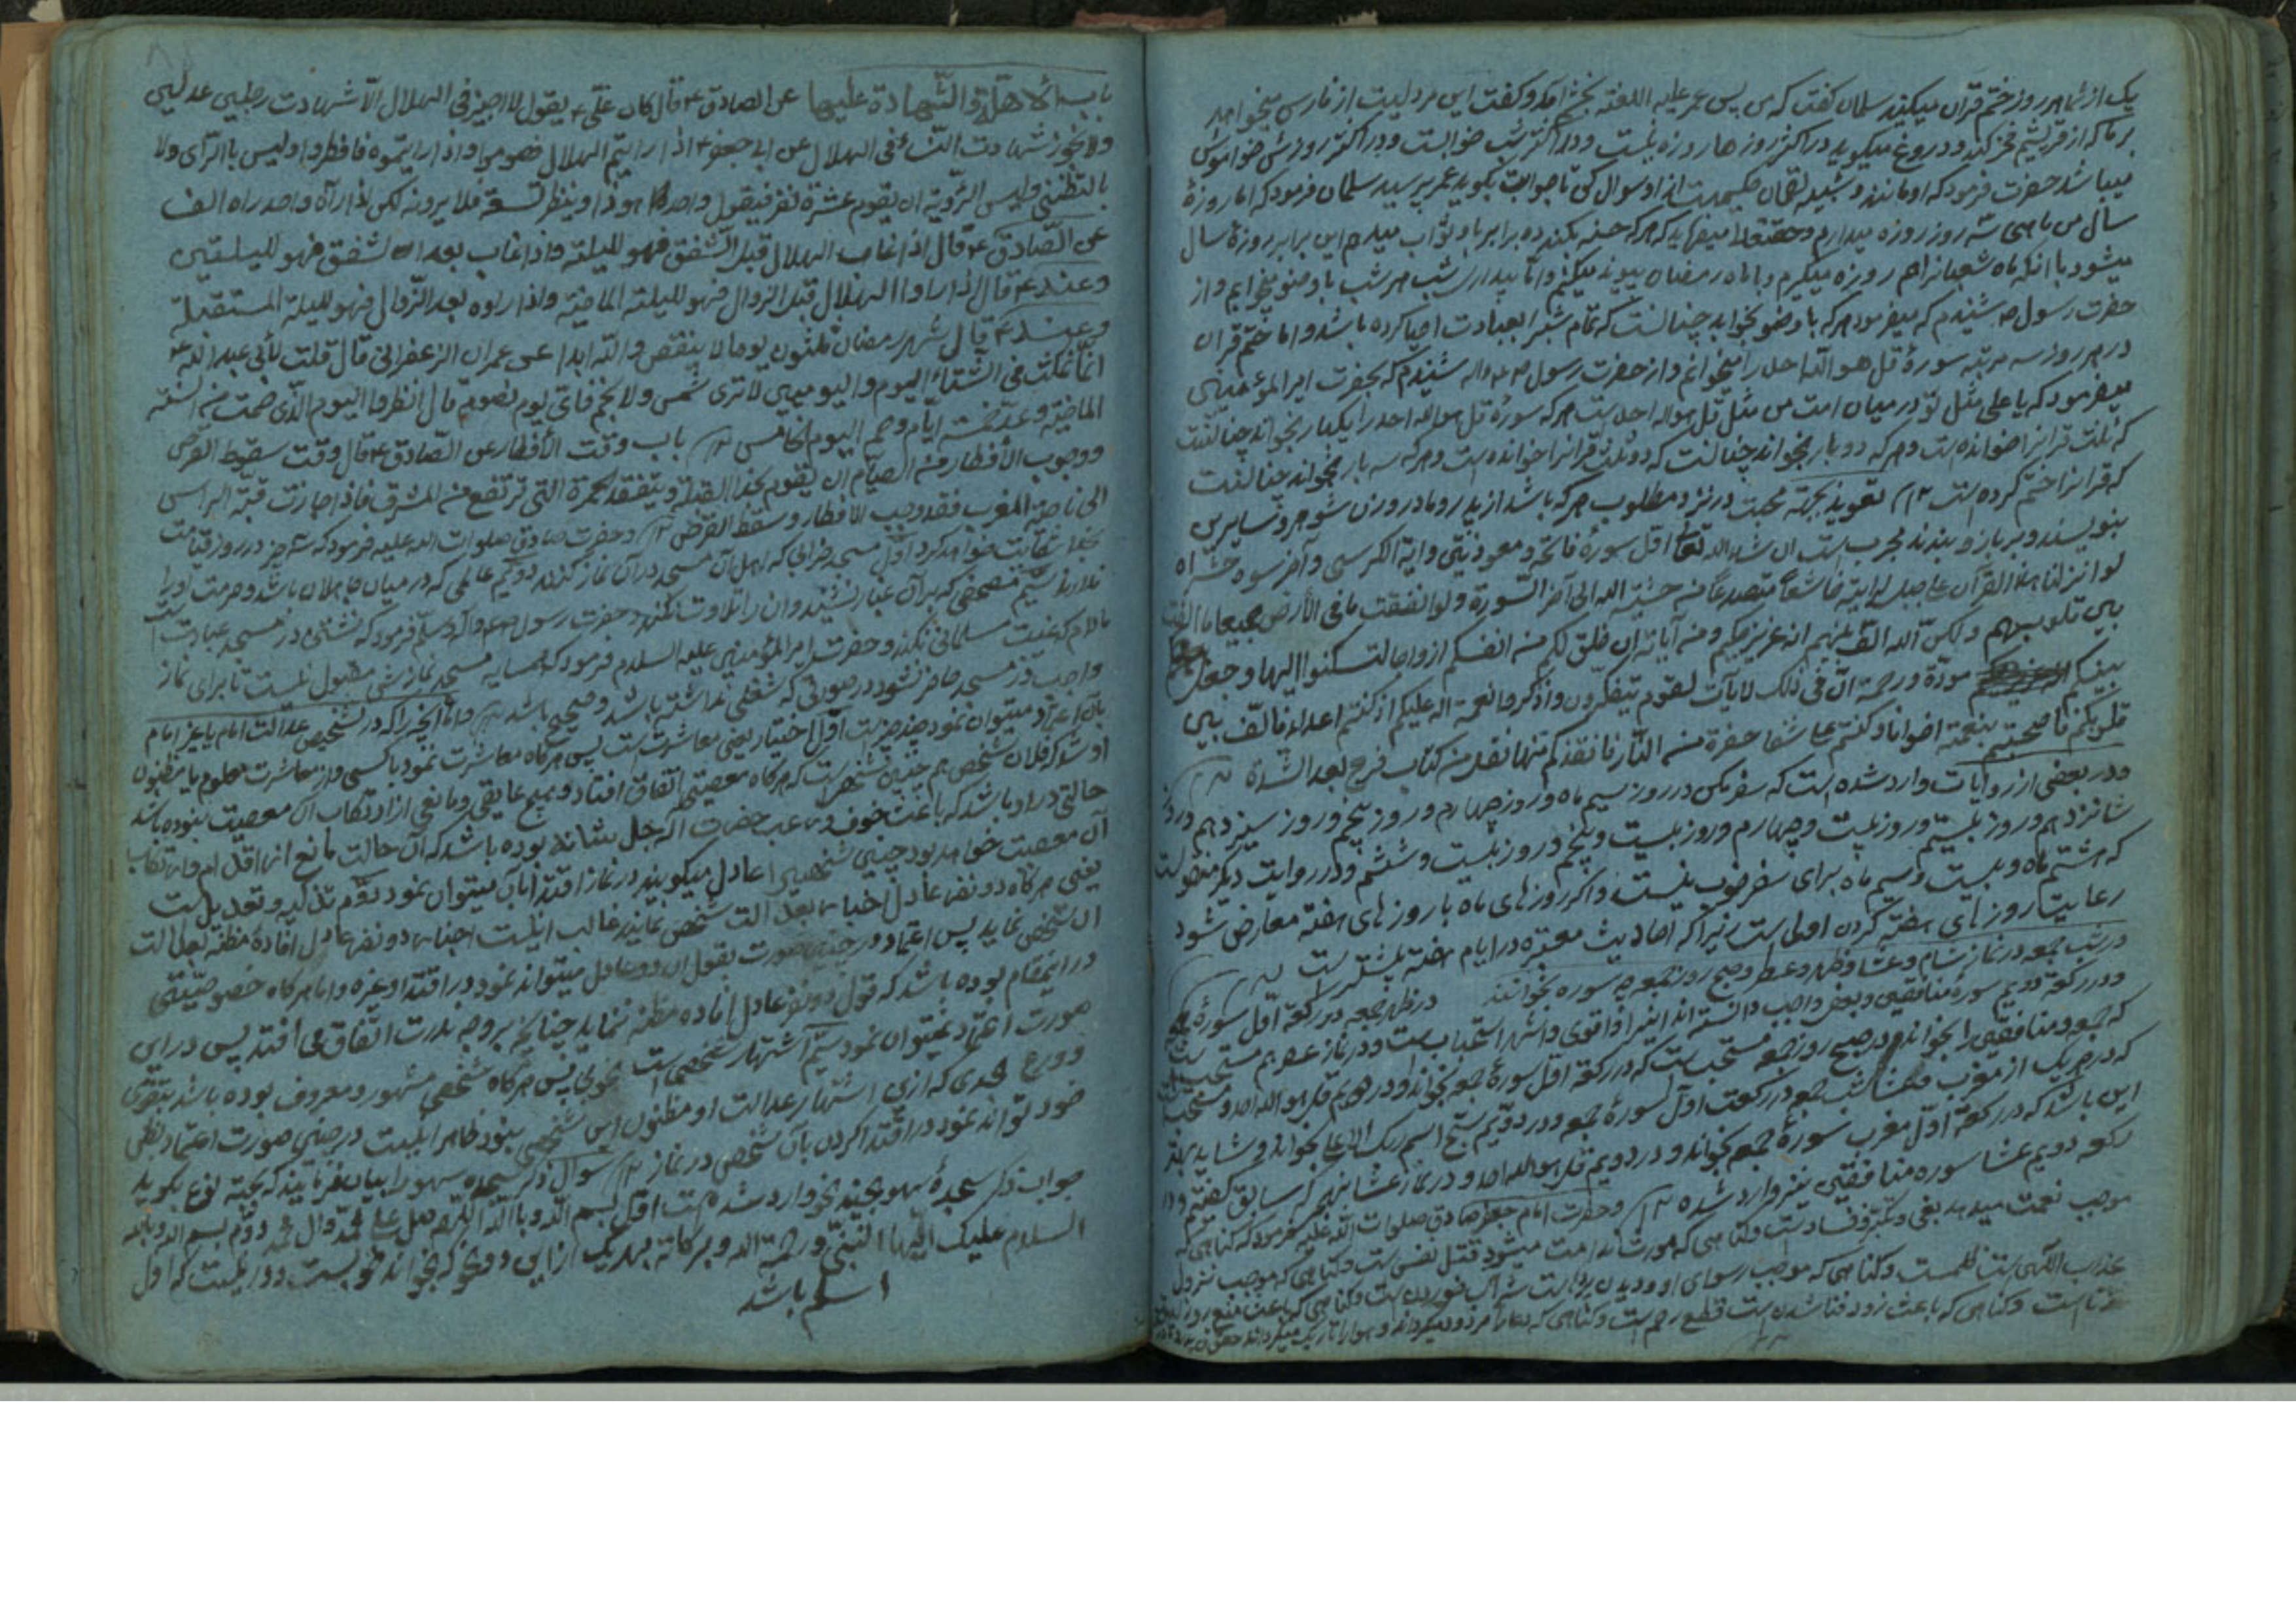 یک از شما هر روز ختم قران میکنید سلمان کفت که من پس عمر علیه اللعنه بخشم آمد و کفت این مردیست از فارس میخواهد
بر ما که از قریشیم فخر کند و دروغ میکوید در اکثر روزها روزه نیست و در اکثر شب خوابست و در اکثر روزش خواموش
میباشد حضرت فرمود که او مانند و شبیه لقمان حکیمست از او سوال کن تا جوابت بکوید عمر پرسید سلمان فرمود که اما روزهٔ
سال من ماهی سه روز روزه میدارم و حقتعالی میفرماید که هر که حسنه بکند ده برابر باو ثواب میدهم این برابر روزهٔ سال
میشود با آنکه ماه شعبانرا هم روزه میکیرم و با ماه رمضان پیوند میکنم و اما بیداری شب هر شب با وضو میخوابم و از
حضرت رسول ص شنیدم که میفرمود هر که با وضو بخوابد چنانست که تمام شبرا بعبادت احیا کرده باشد و اما ختم قران
در هر روز سه مرتبه سورهٔ قل هو الله احد را میخوانم و از حضرت رسول ص شنیدم که بحضرت امیر المؤمنین
میفرمود که یا علی مثل تو در میان امت من مثل قل هو الله احد است هر که سورهٔ قل هو الله احد را یکبار بخواند چنانست
که ثلث قرانرا خوانده است و هر که دو بار بخواند چنانست که دو ثلث قرانرا خوانده است و هر که سه بار بخواند چنانست
که قرانرا ختم کرده است ۱۲ تعویذ بجهة محبت در نزد مطلوب هر که باشد از پدر و مادر و زن شوهر و سایرین
بنویسند و بر بازو ببندند مجرب است ان شاء الله تعالی اول سورهٔ فاتحه و معوذتین و ایة الکرسی و آخر سوره حشر
لو انزلنا هذا القرآن علی جبل لرایته خاشعاً متصدعاً من خشیة الله الی آخر السورة و لو انفقت ما فی الأرض جمیعا ما الفت
بین قلوبهم و لکن الله الف بینهم انه عزیز حکیم و من آیاته ان خلق لکم من انفسکم ازواجا لتسکنوا الیها و جعل
بینکم مودة و رحمة ان فی ذلک لایات لقوم یتفکرون و اذکروا نعمة الله علیکم اذ کنتم اعداء فالف بین
قلوبکم فاصبحتم بنعمته اخوانا و کنتم علی شفا حفرة من النار فانقذکم منها نقل من کتاب فرج بعد الشدة ۱۲
و در بعضی از روایات وارد شده است که سفر مکن در روز سیم ماه و روز چهارم و روز پنجم و روز سیزدهم و روز
شانزدهم و روز بیستم و روز بیست و چهارم و روز بیست و پنجم و روز بیست و ششم و در روایت دیکر منقولست
که هشتم ماه و بیست و سیم ماه برای سفر خوب نیست و اکر روزهای ماه با روزهای هفته معارض شود
رعایت روزهای هفته کردن اولی است زیرا که احادیث معتبره در ایام هفته بیشتر است ۱۲
در شب جمعه در نماز شام و عشا و ظهر و عصر و صبح روز جمعه چه سوره بخوانند در ظهر جمعه در رکعة اول سورهٔ جمعه
و در رکعة دویم سورهٔ منافقین و بعضی واجب دانسته اند انیرا و اقوی و اشهر استحباب است و در نماز عصر هم مستحب است
که جمعه و منافقین را بخواند و در صبح روز جمعه مستحب است که در رکعة اول سورهٔ جمعه بخواند و در دویم قل هو الله احد و مستحب است
که در هر یک از مغرب و عشا شب جمعه در رکعت اول سورهٔ جمعه و در دویم سبح اسم ربک الاعلی بخواند و شاید بهتر
این باشد که در رکعة اول مغرب سورهٔ جمعه بخواند و در دویم قل هو الله احد و در نماز عشا بنهجی که سابق کفتیم و در
رکعة دویم عشا سوره منافقین نیز وارد شده ۱۲ و حضرت امام جعفر صادق صلوات الله علیه فرمود که کناهی که
موجب نعمت میدهد بغی و تکبر و فساد است و کناهی که مورث ندامت میشود قتل نفس است و کناهی که موجب نزول
عذاب الهی است ظلمست و کناهی که موجب رسوای او و دیدن پرده است شراب خوردن است و کناهی که باعث منع روزی
زناست و کناهی که باعث زود فنا شدن است قطع رحم است و کناهی که دعا را مردود میکرداند و هوا را تاریک میکرداند
باب الأهلة و الشهادة علیها عن الصادق ع قال کان علی ع یقول لا اجیز فی الهلال الا شهادت رجلین عدلین
ولا تجوز شهادت النساء فی الهلال عن ابی جعفر ع اذا رایتم الهلال فصوموا و اذا رایتموه فافطروا و لیس بالرأی ولا
بالتظنی و لیس الرؤیة ان یقوم عشرة نفر فیقول واحد هو ذا و ینظر تسعة فلا یرونه لکن اذا رآه واحد راه الف
عن الصادق ع قال اذا غاب الهلال قبل الشفق فهو للیلته و اذا غاب بعد الشفق فهو للیلتین
و عنه ع قال اذا راوا الهلال قبل الزوال فهو للیلته الماضیة و اذا راوه بعد الزوال فهو للیلة المستقبلة
و عنه ع قال شهر رمضان ثلثون یوما لا ینقص والله ابدا عن عمران الزعفرانی قال قلت لأبی عبد الله ع
انا نمکث فی الشتاء الیوم و الیومین لا تری شمس ولا نجم فای یوم نصوم قال انظروا الیوم الذی صمت من السنة
الماضیة و عد خمسة ایام و صم الیوم الخامس ۱۲ باب وقت الأفطار عن الصادق ع قال وقت سقوط القرص
و وجوب الأفطار من الصیام ان یقوم بحذا القبلة و یتفقد الحمرة التی ترتفع من المشرق فاذا جازت قمة الراس
الی ناحیة المغرب فقد وجب الافطار و سقط القرص ۱۲ و حضرت صادق صلوات الله علیه فرمود که سه چیز در روز قیامت
بخدا شکایت خواهد کرد اول مسجد خرابی که اهل آن مسجد در آن نماز نکنند دویم عالمی که در میان جاهلان باشد و حرمت او را
ندارند سیم مصحفی که بر آن غبار نشیند و ان را تلاوت نکنند و حضرت رسول ص و آله و سلم فرمود که نشستن در مسجد عبادت است
مادام که غیبت مسلمانی نکند و حضرت امیر المؤمنین علیه السلام فرمود که همسایه مسجد نمازش مقبول نیست تا برای نماز
واجب در مسجد حاضر نشود در صورتی که شغلی نداشته باشد و صحیح باشد ۱۲ و اما آنچیزی که در تشخیص عدالت امام یا غیر امام
بان اعتماد میتوان نمود چند چیز است اول اختیار یعنی معاشرت است پس هر کاه معاشرت نمود با کسی و از معاشرت معلوم یا مظنون
او شد که فلان شخص هم چنین شخصی است که هر کاه معصیتی اتفاق افتاد و هیچ عایقی و مانعی از ارتکاب ان معصیت نبوده باشد
حالتی در او باشد که باعث خوف و رعب حضرت اله جل شانه بوده باشد که آن حالت مانع از اقدام و ارتکاب
آن معصیت خواهد بود چنین شخصی را عادل میکویند در نماز اقتدا بآن میتوان نمود دوم تزکیه و تعدیل است
یعنی هر کاه دو نفر عادل اخبار بعدالت شخصی نمایند غالب اینست اخبار دو نفر عادل افادهٔ مظنه بعدالت
ان شخص نماید پس اعتماد در چنین صورت بقول ان دو عادل میتواند نمود در اقتدا و غیره و اما هر کاه خصوصیتی
در انمقام بوده باشد که قول دو نفر عادل افاده مظنه ننماید چنانچه بر وجه ندرت اتفاق می افتد پس در این
صورت اعتماد نمیتوان نمود سیم اشتهار شخصی است بخوبی پس هر کاه شخصی مشهور و معروف بوده باشد بتقوی
و ورع بحدی که ازین اشتهار عدالت او مظنون این شخص بشود ظاهر اینست در چنین صورت اعتماد بظن
خود تواند نمود در اقتدا کردن بآن شخص در نماز ۱۲ سوال ذکر سجده سهو را بیان فرمایند که بجه نوع بکوید
جواب ذکر سجدهٔ سهو بچند نحو وارد شده است اول بسم الله و بالله اللهم صل علی محمد و آل محمد دوم بسم الله و بالله
السلام علیک ایها النبی و رحمة الله و برکاته بهر یک از این دو نحو که بخواند خوبست و دور نیست که اول
اسلم باشد